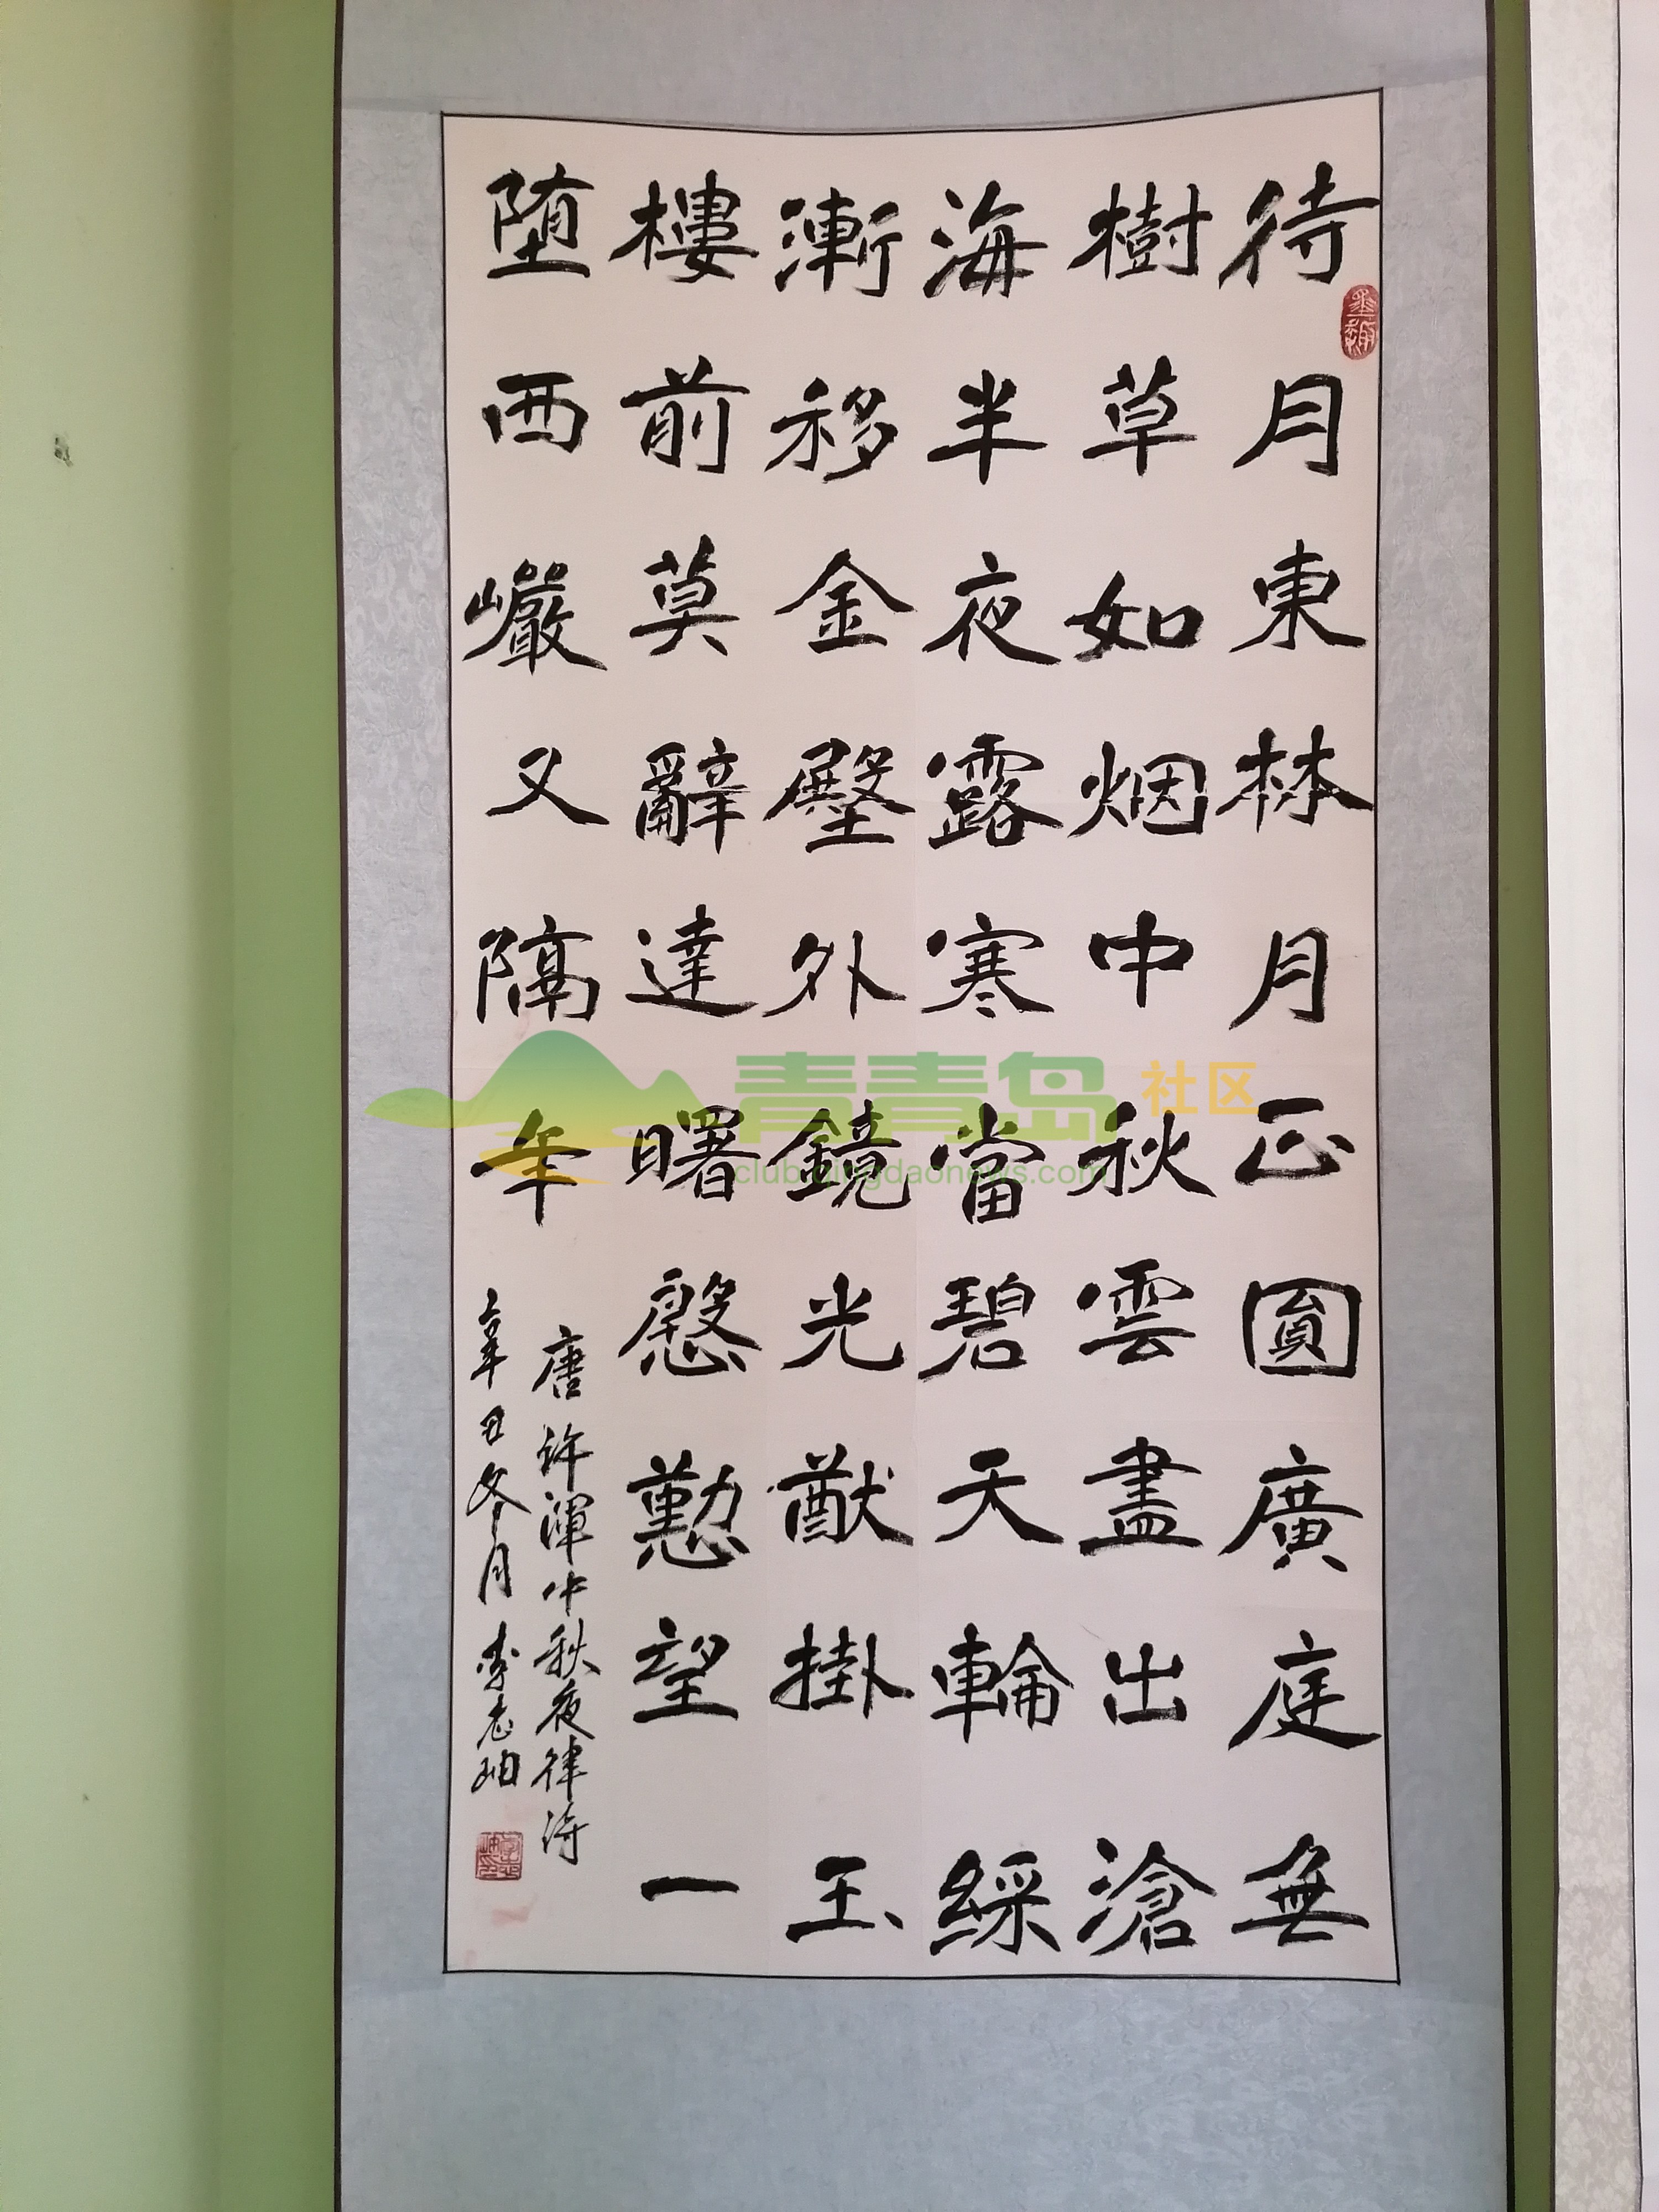 待月東林月正圎廣庭無
樹草如烟中秋雲盡出滄
海半夜露寒當碧天輪綵
漸移金壂外鏡光猷掛玉
樓前莫辭達曙慇懃望一
堕西巗又隔年
唐许渾中秋夜律诗
辛丑冬月李志
青青岛社区
club.qingdaonews.com